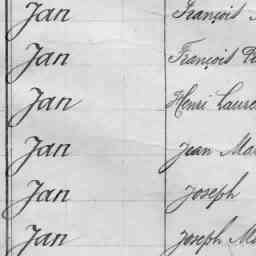 Jan François
Jan François
Jan Henri
Jan Jean
Jan Joseph
Jan Joseph